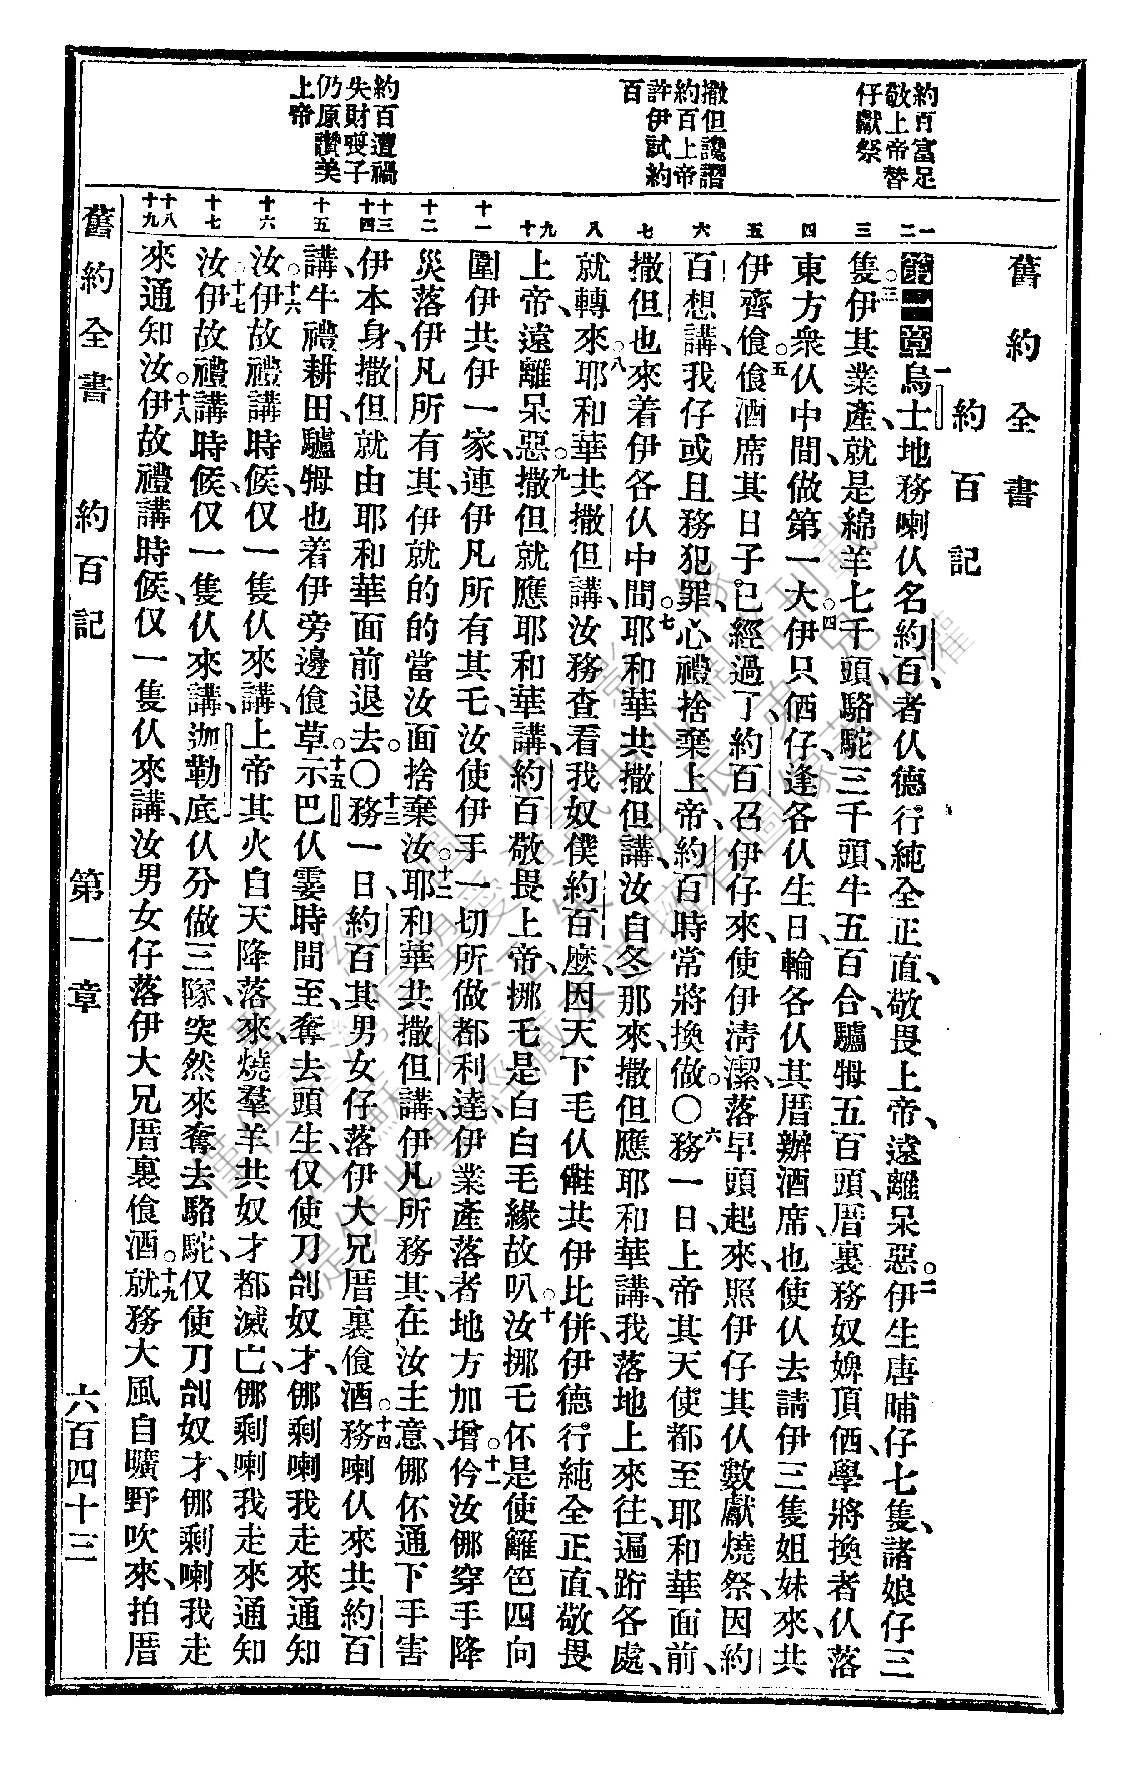 約百富足
敬上帝替
仔獻祭
撒但讒謟
約百上帝
許伊試約
百
約百遭禍
失財喪子
仍原讚美
上帝
一
二
三
四
五
六
七
八
九
十
十一
十二
十三
十四
十五
十六
十七
十八
十九
舊約全書
約百記
第一章烏士地務喇仈名約百、者仈德行純全正直、敬畏上帝、遠離呆惡。二伊生唐晡仔七隻、諸娘仔三
隻。三伊其業產、就是綿羊七千頭、駱駝三千頭、牛五百合、驢牳五百頭、厝裏務奴婢頂価、學將換者仈落
東方衆仈中間、做第一大。四伊只価仔、逢各仈生日、輪各仈其厝辦酒席、也使仈去請伊三隻姐妹來、共
伊齊飡。五飡酒席其日子、已經過了、約百召伊仔來、使伊清潔、落早頭起來、照伊仔其仈數獻燒祭、因約
百想講、我仔或且務犯罪、心禮捨棄上帝、約百時常將換做。〇六務一日、上帝其天使都至耶和華面前、
撒但也來着伊各仈中間。七耶和華共撒但講、汝自冬那來、撒但應耶和華講、我落地上來往、遍跴各處、
就轉來。八耶和華共撒但講、汝務查看我奴僕約百麼、因天下毛仈𠆧共伊比併、伊德行純全正直、敬畏
上帝、遠離呆惡。九撒但就應耶和華講、約百敬畏上帝、挪乇是白白毛緣故叭。十汝挪乇伓是使籬笆四向
圍伊共伊一家、連伊凡所有其乇、汝使伊手一切所做都利達、伊業產落者地方加增。十一仱汝僫穿手降
災落伊凡所有其、伊就的的當汝面捨棄汝。十二耶和華共撒但講、伊凡所務其、在汝主意、僫伓通下手害
伊本身、撒但就由耶和華面前退去。〇十三務一日、約百其男女仔落伊大兄厝裏飡酒。十四務喇仈來共約百
講、牛禮耕田、驢牳也着伊旁邊飡草。十五示巴仈霎時間至、奪去頭生、仅使刀創奴才、僫剩喇我走來通知
汝。十六伊故禮講時候、仅一隻仈來講、上帝其火自天降落來、燒羣羊共奴才都滅亡、僫剩喇我走來通知
汝。十七伊故禮講時候、仅一隻仈來講、迦勒底仈分做三隊、突然來奪去駱駝、仅使刀創奴才、僫剩喇我走
來通知汝。十八伊故禮講時候、仅一隻仈來講、汝男女仔落伊大兄厝裏飡酒。十九就務大風自曠野吹來、拍厝
舊約全書 約百記 第一章 六百四十三